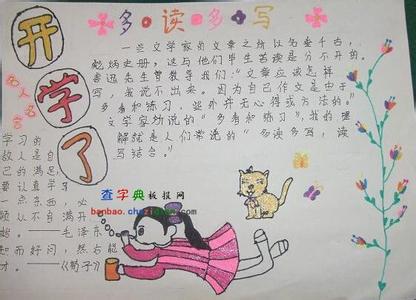 开学了
多读多写
一些文学家的文章之所以名垂千古,
彪炳史册,这与他们毕生苦读是分不开的。
鲁迅先生曾教导我们:"文章应该怎样
写,我说不出来。因为自己作文是由于
多看和练习,此外并无心得或方法的。"
文学家所说的"多看和练习",我的理
解就是人们常说的"多读多写,读
写结合。"
名人名言
学习的
敌人是自
己的满足,
要认真学习
一点东西,必
须从不自满开
始。——毛泽东
知而好问,然后能
才。——《荀子》
查字典板报网
banbao.chazidian.com